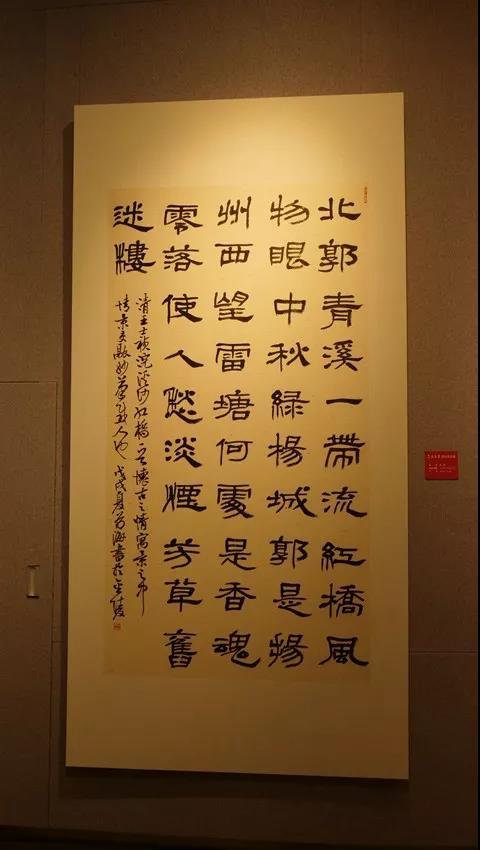 北郭青溪一帶流紅橋風
物眼中秋綠楊城郭是揚
州西望雷塘何處是香魂
零落使人愁淡煙芳草舊
迷樓
清王士禎浣溪沙紅橋懷古之情寓景之中
情景交融妙筆人也戊戌夏書於金陵